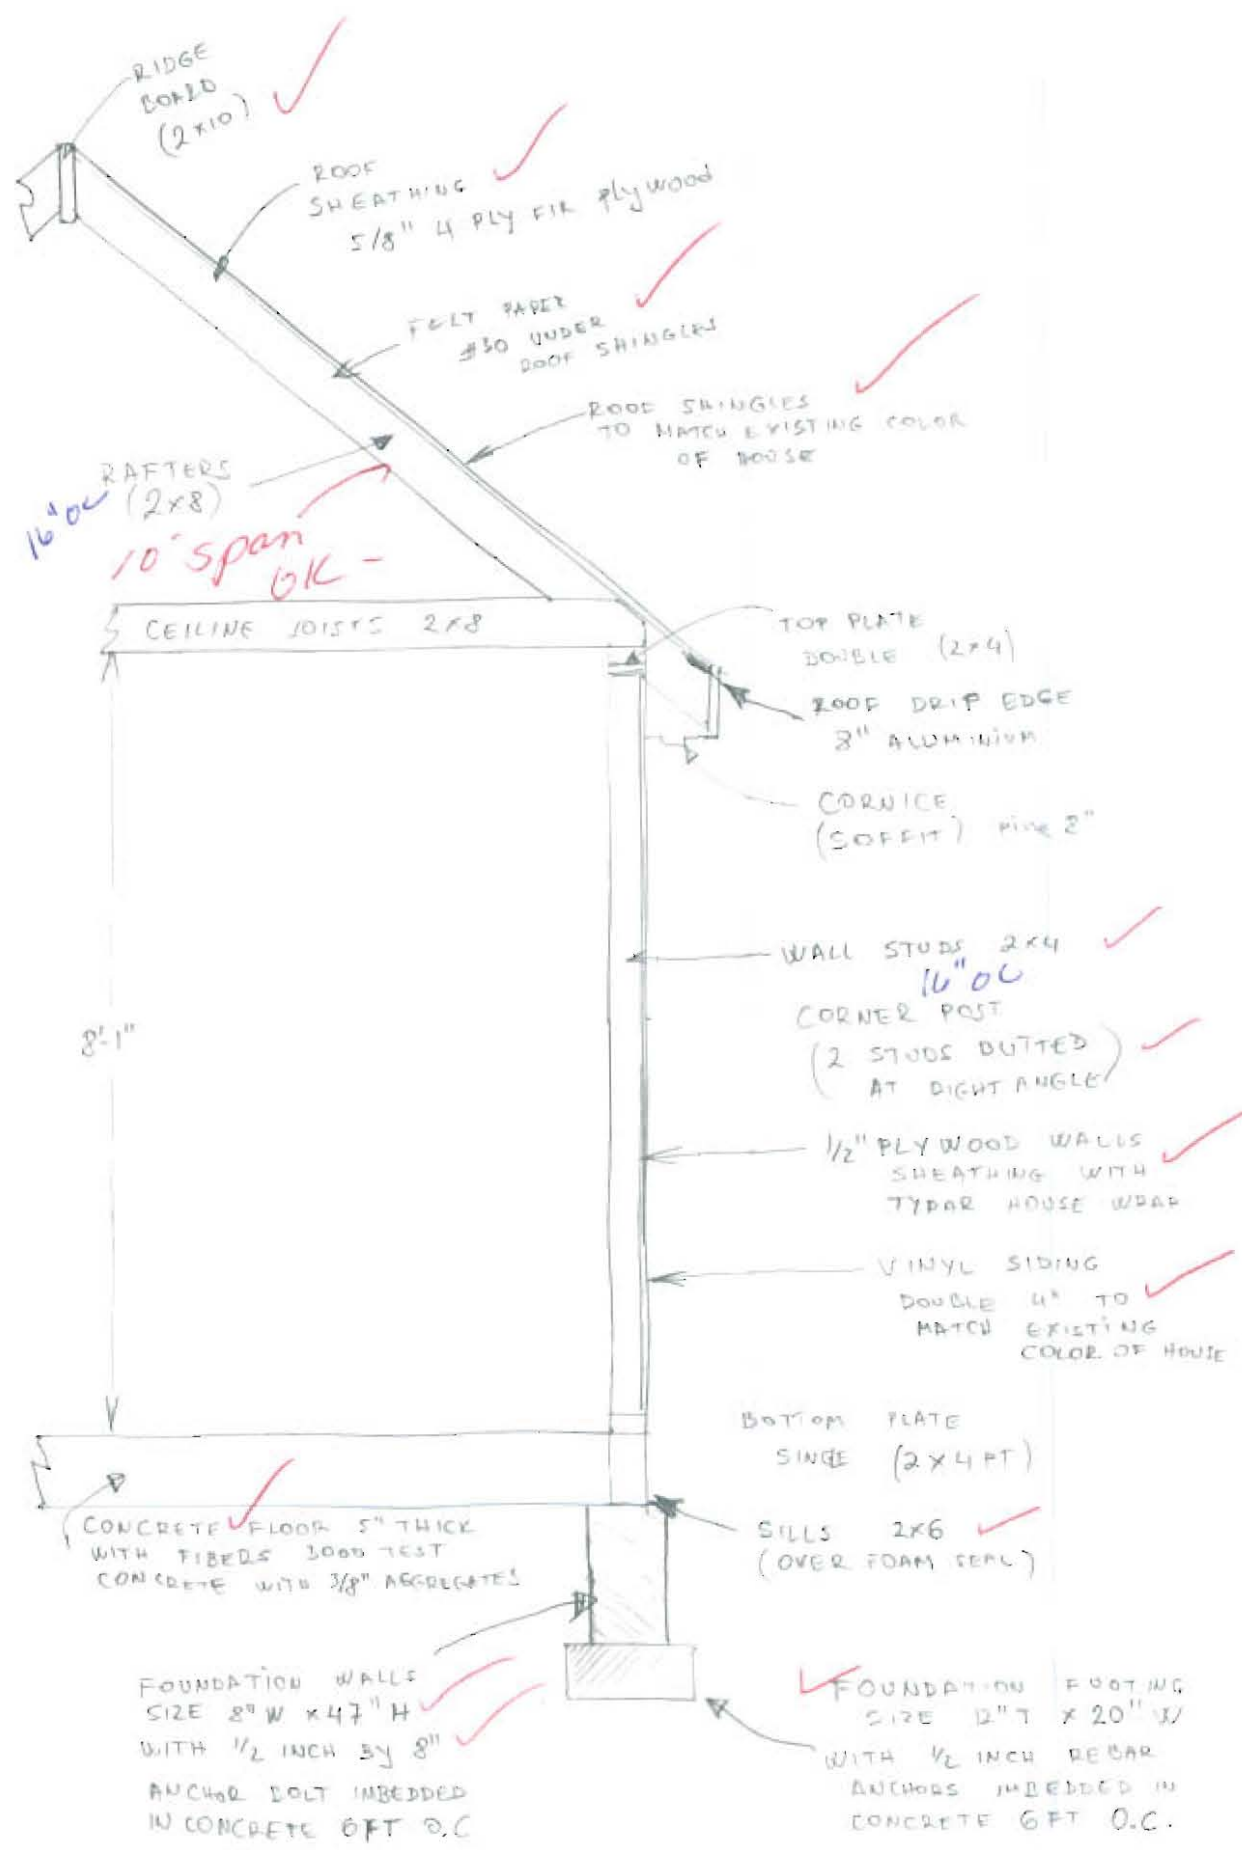 RIDGE
BOARD
(2x10)
ROOF
SHEATHING
5/8" 4 PLY FIR plywood
FELT PAPER
#30 UNDER
ROOF SHINGLES
ROOF SHINGLES
TO MATCH EXISTING COLOR
OF HOUSE
RAFTERS
(2x8)
16" OC
10' span
OK -
CEILINE JOISTS 2x8
TOP PLATE
DOUBLE (2x4)
ROOF DRIP EDGE
8" ALUMINIUM
CORNICE
(SOFFIT) Pine 8"
WALL STUDS 2x4
16" OC
CORNER POST
(2 STUDS BUTTED
AT RIGHT ANGLE)
8'-1"
1/2" PLYWOOD WALLS
SHEATHING WITH
TYPAR HOUSE WRAP
VINYL SIDING
DOUBLE 4" TO
MATCH EXISTING
COLOR OF HOUSE
BOTTOM PLATE
SINGE (2x4 PT)
SILLS 2x6
(OVER FOAM SEAL)
CONCRETE FLOOR 5" THICK
WITH FIBERS 3000 TEST
CONCRETE WITH 3/8" AGGREGATES
FOUNDATION WALLS
SIZE 8" W x 47" H
WITH 1/2 INCH BY 8"
ANCHOR BOLT IMBEDDED
IN CONCRETE 6FT O.C
FOUNDATION FOOTING
SIZE 12" T x 20" W
WITH 1/2 INCH REBAR
ANCHORS IMBEDDED IN
CONCRETE 6FT O.C.